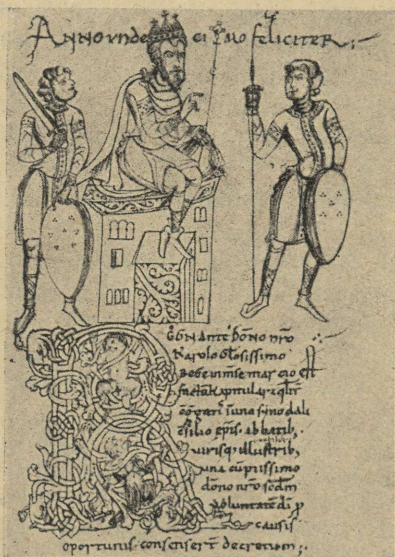 ANNO VNDECIMO FELICITER
REGNANTE DONO NRO
KAROLO GLOSISSIMO
REGE IN MSE MARCIO
FACTA KAPITULARA
IN UNO SINODALI
CSILIO EPIS. ABBATIB.
VIRISQ; ILLUSTRIB.
UNA CU PIISSIMO
DONO NRO SCDM
VOLUNTATE DI P
CAUSIS
OPORTUNIS CONSENSERT DECRETUM